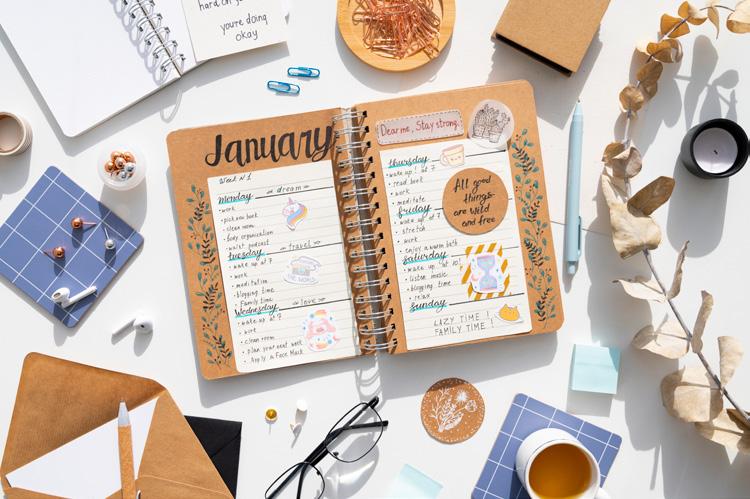 hard on yo
you're doing
okay
January
Week №1
Monday
dream
• work
• pick new book
• clean room
• body organisation
podcast
Tuesday
travel
• wake up at 7
• work
• meditation
• blogging time
• Family time
Wednesday
love
• wake up at 7
• work
• clean room
• plan your next week
• Apply a Face Mask
Dear me, Stay strong.
Thursday
• wake up! at 7
• read book
• work
• meditate
Friday
• wake up at 7
• stretch
• work
• enjoy a warm bath
Saturday
• wake up at 10!
• listen music
• blogging time
• relax
Sunday
LAZY TIME!
FAMILY TIME!
All good
things
are wild
and free